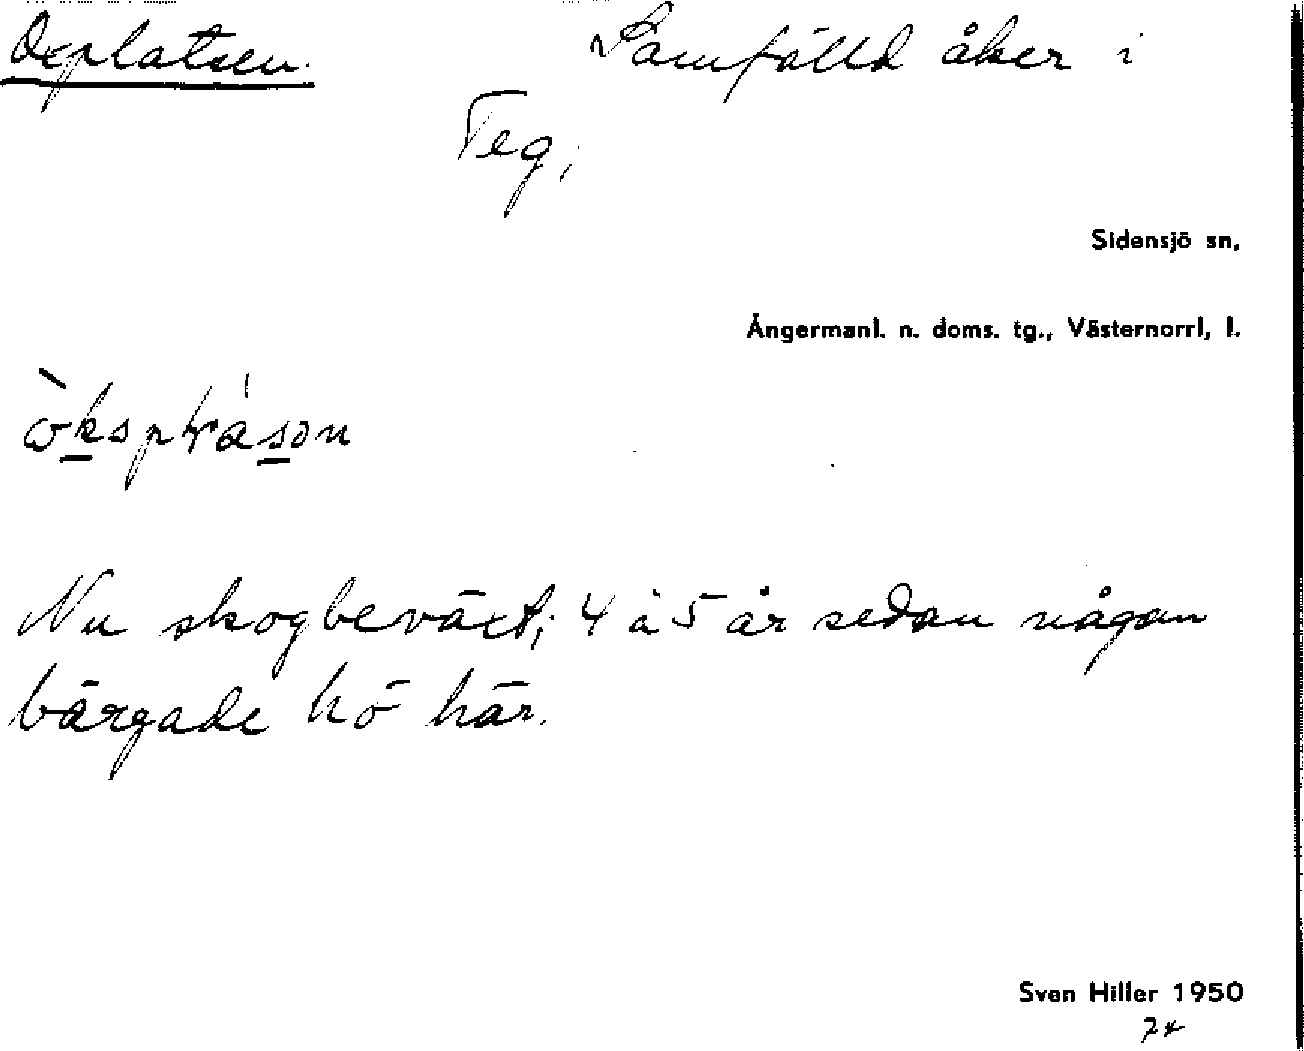 Oxplatsen. Samfälld åker i
Teg,
Sidensjö sn,
Ångermanl. n. doms. tg., Västernorrl, l.
Nu skogbeväxt; 4 à 5 år sedan någon
bärgade hö här.
Sven Hiller 1950
74